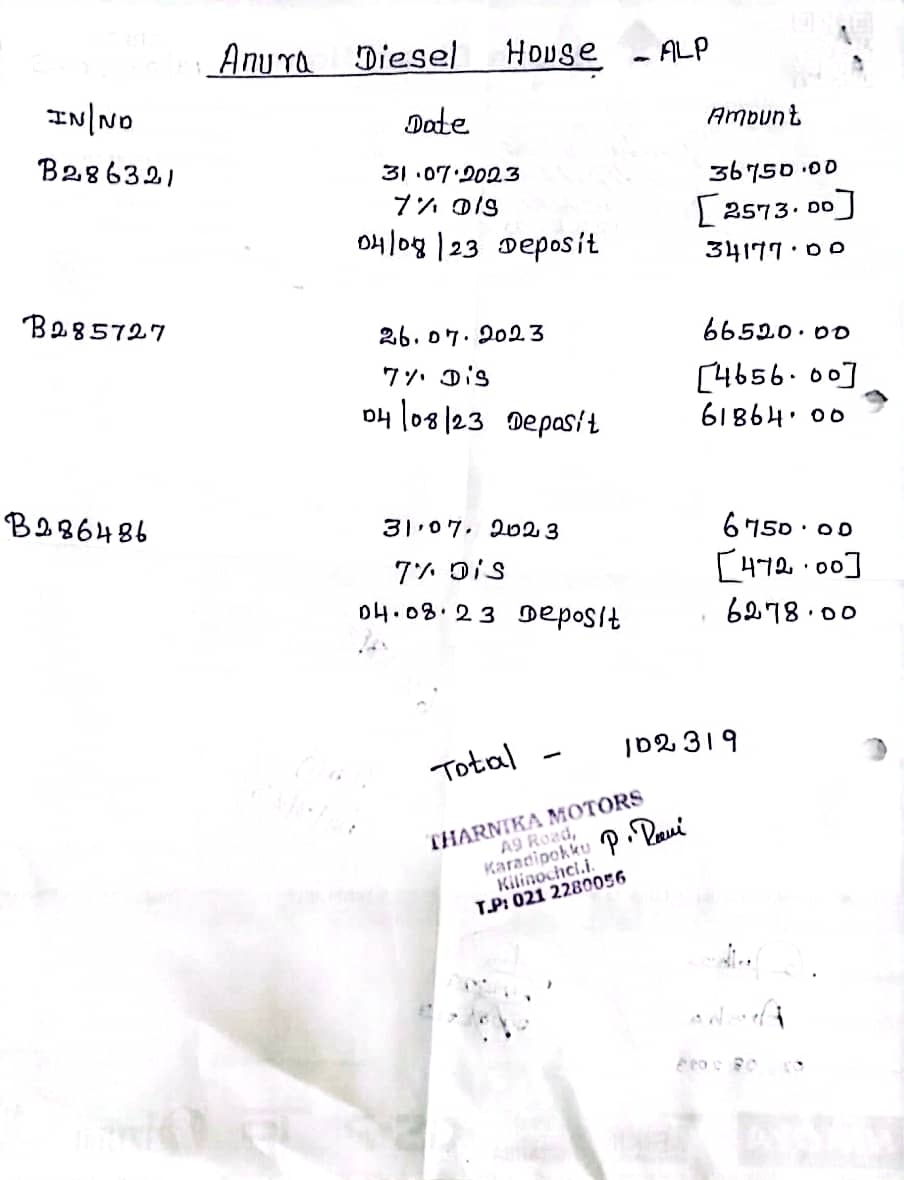 Anura Diesel House - ALP
IN/NO Date Amount
B286321 31.07.2023 36750.00
7% DIS [2573.00]
04/08/23 Deposit 34177.00
B285727 26.07.2023 66520.00
7% Dis [4656.00]
04/08/23 Deposit 61864.00
B286486 31.07.2023 6750.00
7% Dis [472.00]
04.08.23 Deposit 6278.00
Total - 102319
THARNIKA MOTORS
A9 Road,
Karadipokku P. Ravi
Kilinochci.i.
T.P: 021 2280056